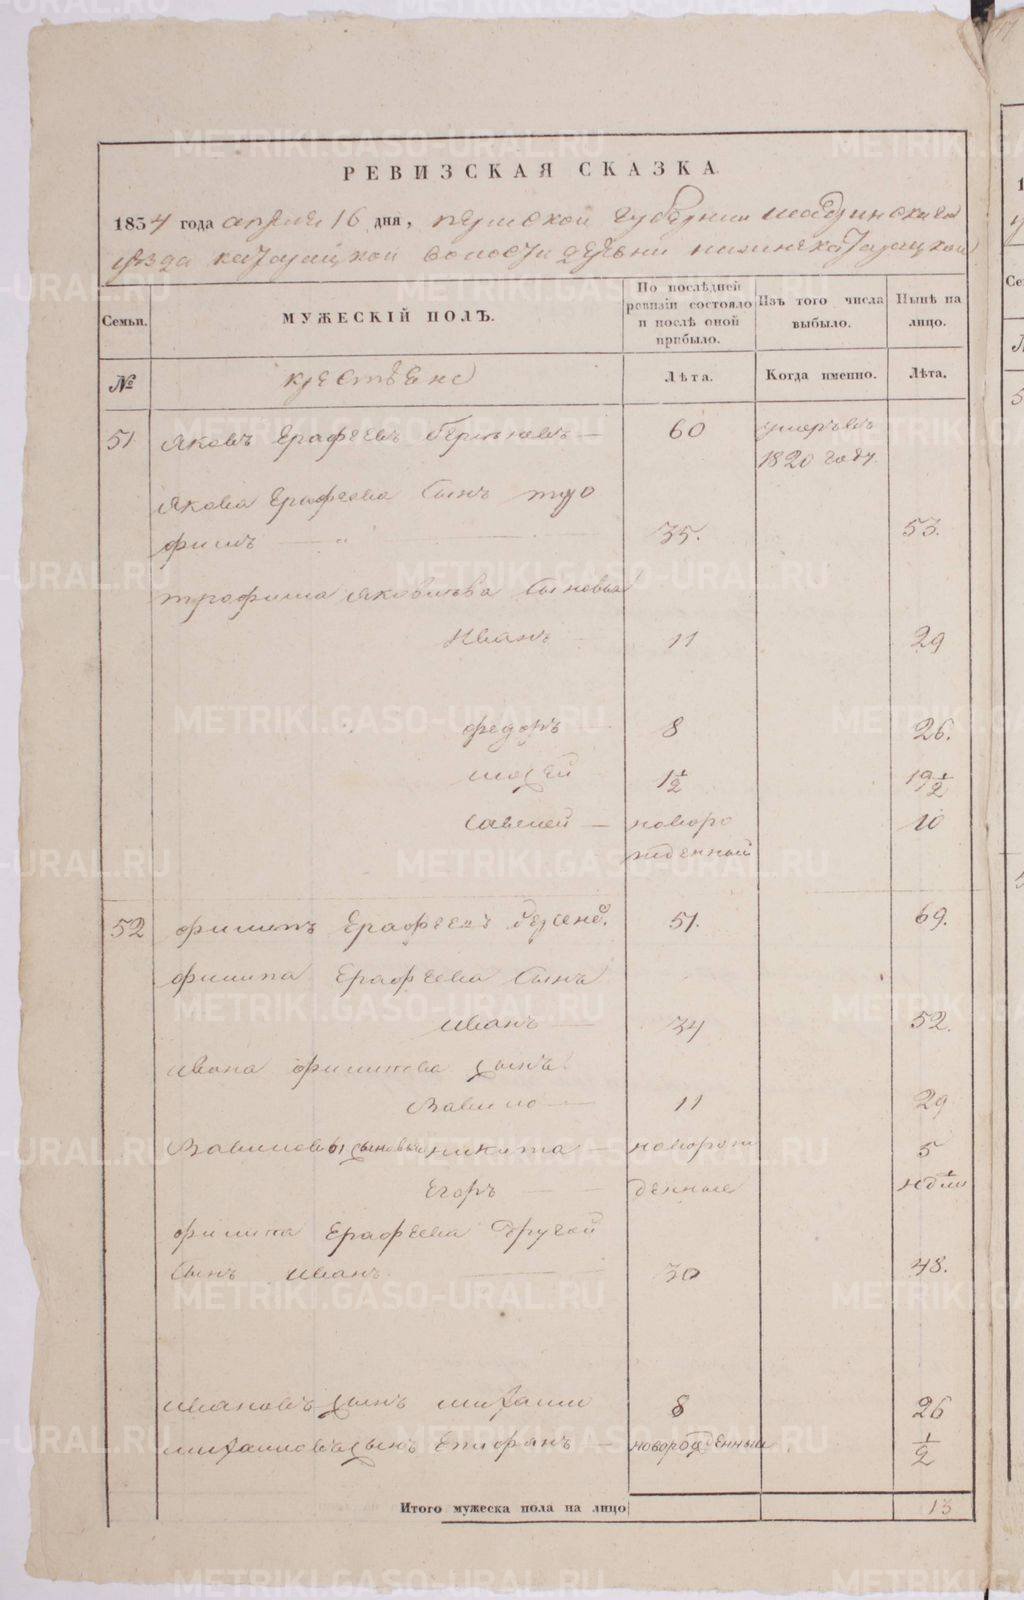 РЕВИЗСКАЯ СКАЗКА.
1834 года апреля 16 дня, пермской губернии шадринскаго
уезда катайцкой волости деревни
Семьи.
МУЖЕСКІЙ ПОЛЪ.
По последней ревизіи состояло и после оной прибыло.
Изъ того числа выбыло.
Ныне на лицо.
№
крестьяне
Лета.
Когда именно.
Лета.
51 Яковъ Ерафеевъ — 60 умеръ въ
1820 году.
Якова Ерафеева сынъ тро
фимъ — 35. 53.
трофима Яковлева сыновья
Иванъ 11 29
федотъ 8 26.
мосей 1½ 19½
савелей — новоро 10
жденный
52 филипъ Ерафеевъ 51. 69.
филипа Ерафеева сынъ
Иванъ — 34 52.
Ивана филипова сынъ
Вавило — 11 29
Вавиловы сыновья никита — новорож 5
Егоръ — денные
филипа Ерафеева другой
сынъ Иванъ 30 48.
Ивановъ сынъ михаило 8 26
михаиловъ сынъ Епифанъ — новорожденный ½
Итого мужеска пола на лицо 13
METRIKI.GASO-URAL.RU